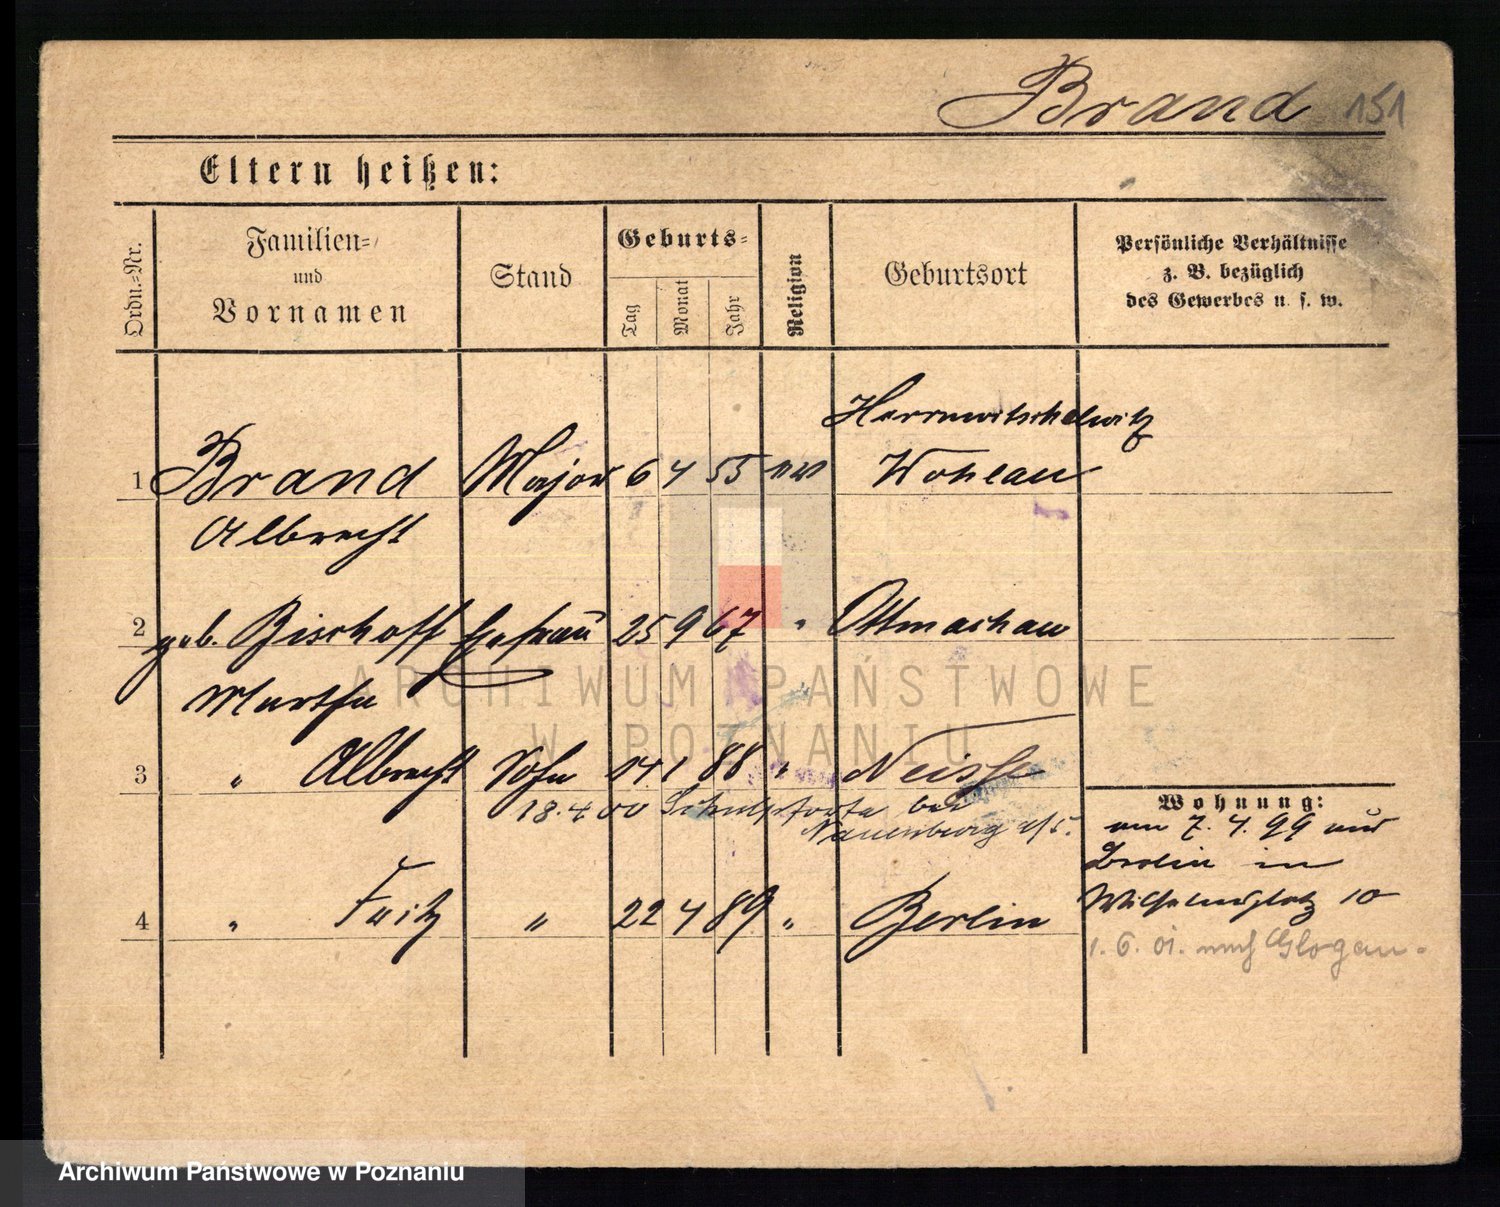 Brand 151
Eltern heißen:
Ordn.-Nr.
Familien-
und
Vornamen
Stand
Geburts-
Tag
Monat
Jahr
Religion
Geburtsort
Persönliche Verhältnisse
z. B. bezüglich
des Gewerbes u. s. w.
Herrnmotschelnitz
1 Brand Major 6 4 55 Wohlau
Albrecht
2 geb. Bischoff Ehefrau 25 9 67 " Ottmachau
Martha
3 " Albrecht Sohn 14 1 88 " Neisse
18.4.00 Schulpforta bei
Naumburg a/S.
4 " Fritz " 22 4 89 " Berlin
Wohnung:
am 7. 4. 99 aus
Berlin in
Wilhelmsplatz 10
1. 6. 01. nach Glogau.
ARCHIWUM PAŃSTWOWE
W POZNANIU
Archiwum Państwowe w Poznaniu